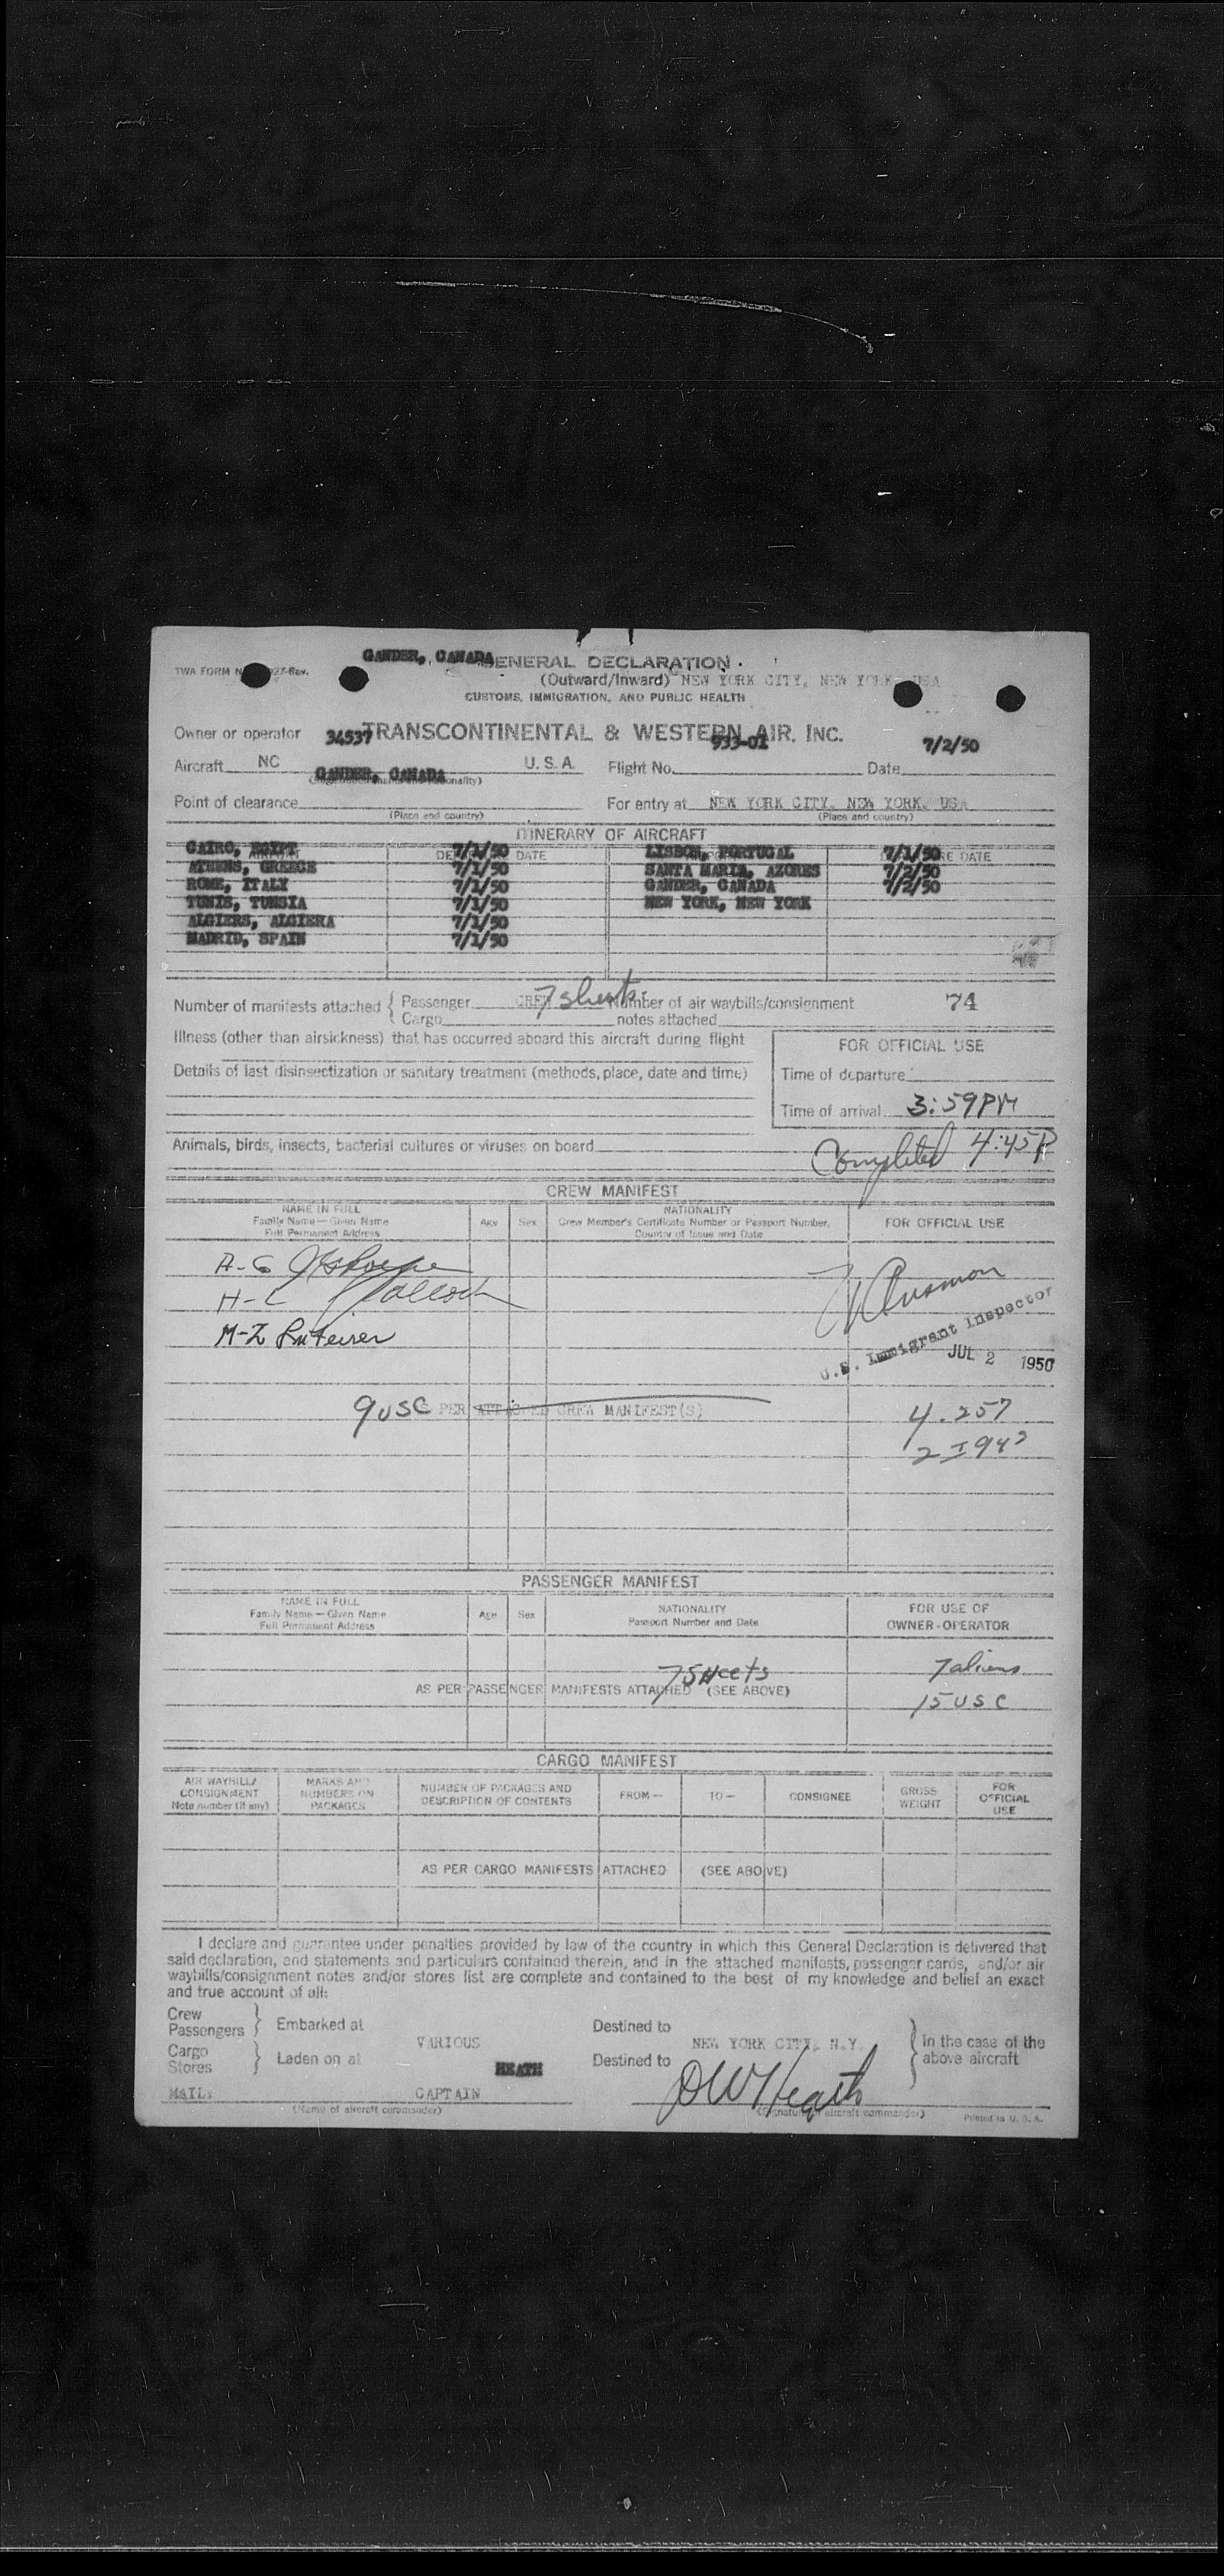 GANDER, CANADA
GENERAL DECLARATION
TWA FORM 27-Rev.
(Outward/Inward) NEW YORK CITY, NEW YORK USA
CUSTOMS, IMMIGRATION, AND PUBLIC HEALTH
Owner or operator TRANSCONTINENTAL & WESTERN AIR. INC.
34537 933-01 7/2/50
Aircraft NC U. S. A. Flight No. Date
GANDER, CANADA
Point of clearance For entry at NEW YORK CITY, NEW YORK, USA
(Place and country) (Place and country)
ITINERARY OF AIRCRAFT
CAIRO, EGYPT 7/1/50 LISBON, PORTUGAL 7/1/50
ATHENS, GREECE 7/1/50 SANTA MARIA, AZORES 7/2/50
ROME, ITALY 7/1/50 GANDER, CANADA 7/2/50
TUNIS, TUNSIA 7/1/50 NEW YORK, NEW YORK
ALGIERS, ALGIERA 7/1/50
MADRID, SPAIN 7/1/50
Number of manifests attached { Passenger 7 sheets Number of air waybills/consignment 74
Cargo notes attached
Illness (other than airsickness) that has occurred aboard this aircraft during flight
FOR OFFICIAL USE
Details of last disinsectization or sanitary treatment (methods, place, date and time)
Time of departure
Time of arrival 3:59PM
Animals, birds, insects, bacterial cultures or viruses on board
Completed 4:45P
CREW MANIFEST
NAME IN FULL NATIONALITY
Family Name — Given Name Age Sex Crew Member's Certificate Number or Passport Number, FOR OFFICIAL USE
Full Permanent Address Country of Issue and Date
A-G
H-L
M-Z
U.S. Immigrant Inspector
JUL 2 1950
9 USC PER ATTACHED CREW MANIFEST(S) 4.257
PASSENGER MANIFEST
NAME IN FULL NATIONALITY FOR USE OF
Family Name — Given Name Age Sex Passport Number and Date OWNER-OPERATOR
Full Permanent Address
7 SHeets 7 aliens
AS PER PASSENGER MANIFESTS ATTACHED (SEE ABOVE) 15 USC
CARGO MANIFEST
AIR WAYBILL/ CONSIGNMENT Note number (if any) MARKS AND NUMBERS ON PACKAGES NUMBER OF PACKAGES AND DESCRIPTION OF CONTENTS FROM— TO— CONSIGNEE GROSS WEIGHT FOR OFFICIAL USE
AS PER CARGO MANIFESTS ATTACHED (SEE ABOVE)
I declare and guarantee under penalties provided by law of the country in which this General Declaration is delivered that
said declaration, and statements and particulars contained therein, and in the attached manifests, passenger cards, and/or air
waybills/consignment notes and/or stores list are complete and contained to the best of my knowledge and belief an exact
and true account of all:
Crew
Passengers } Embarked at VARIOUS Destined to NEW YORK CITY, N.Y. } in the case of the
Cargo
Stores } Laden on at Destined to above aircraft
HEATH
MAIL: CAPTAIN DW Heath
(Name of aircraft commander) (Signature of aircraft commander) Printed in U. S. A.